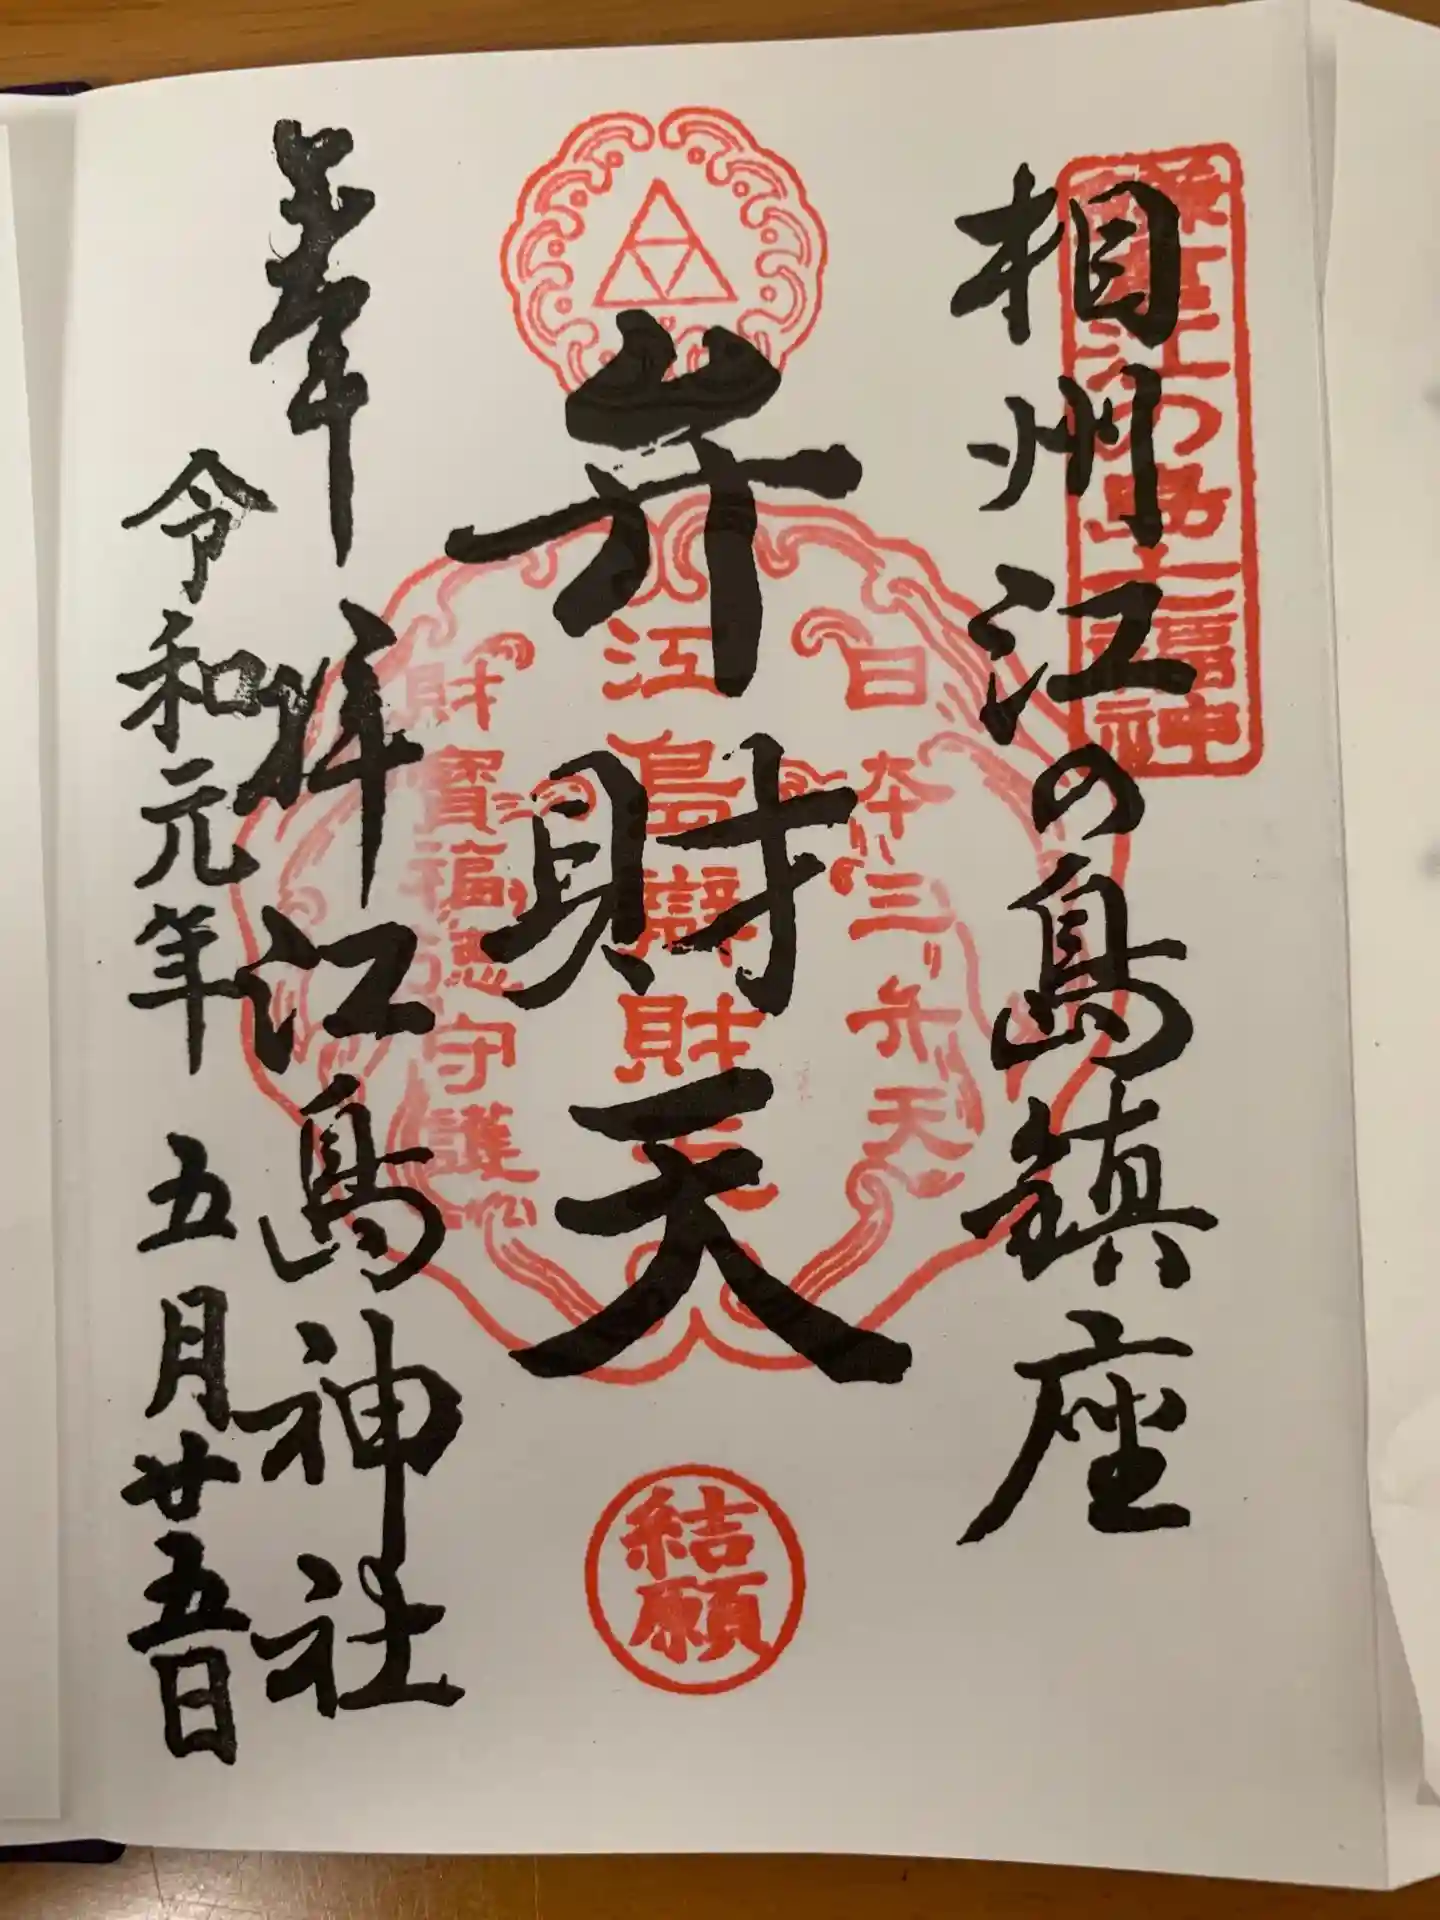 相州江の島鎮座
鎌倉江の島七福神社
弁財天
日本三弁天
江島辯財天
財寶福徳守護
結願
奉拝江島神社
令和元年五月廿五日